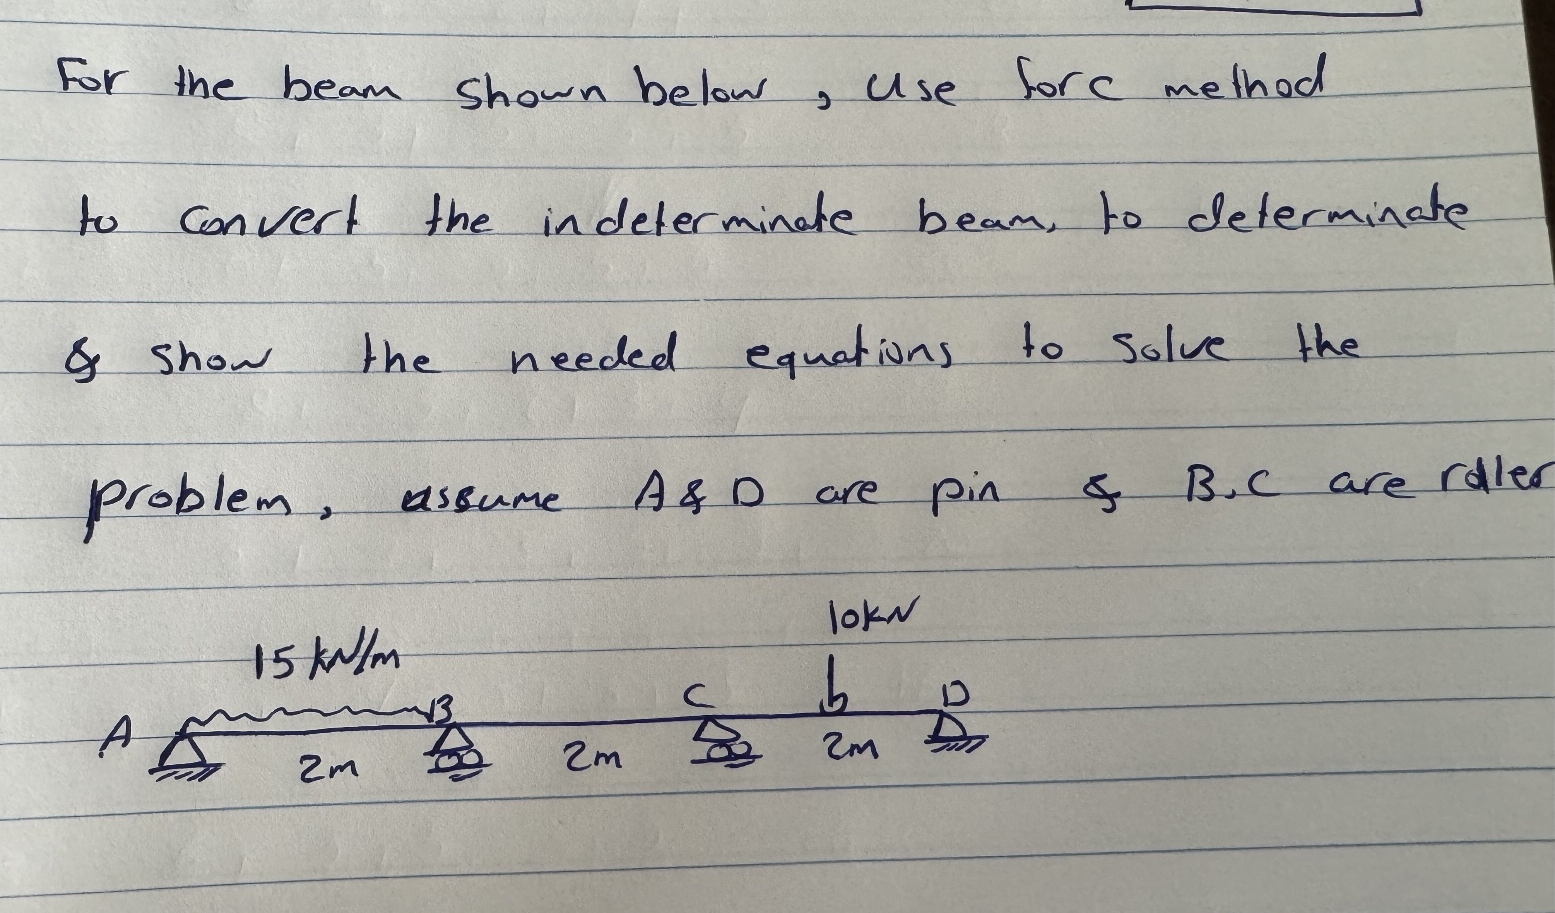 For the beam shown below, use forc method
to convert the indeterminate beam, to determinate
& show the needed equations to solve the
problem, assume A & D are pin & B,C are roller
10kN
15 kN/m
A B C D
2m 2m 2m